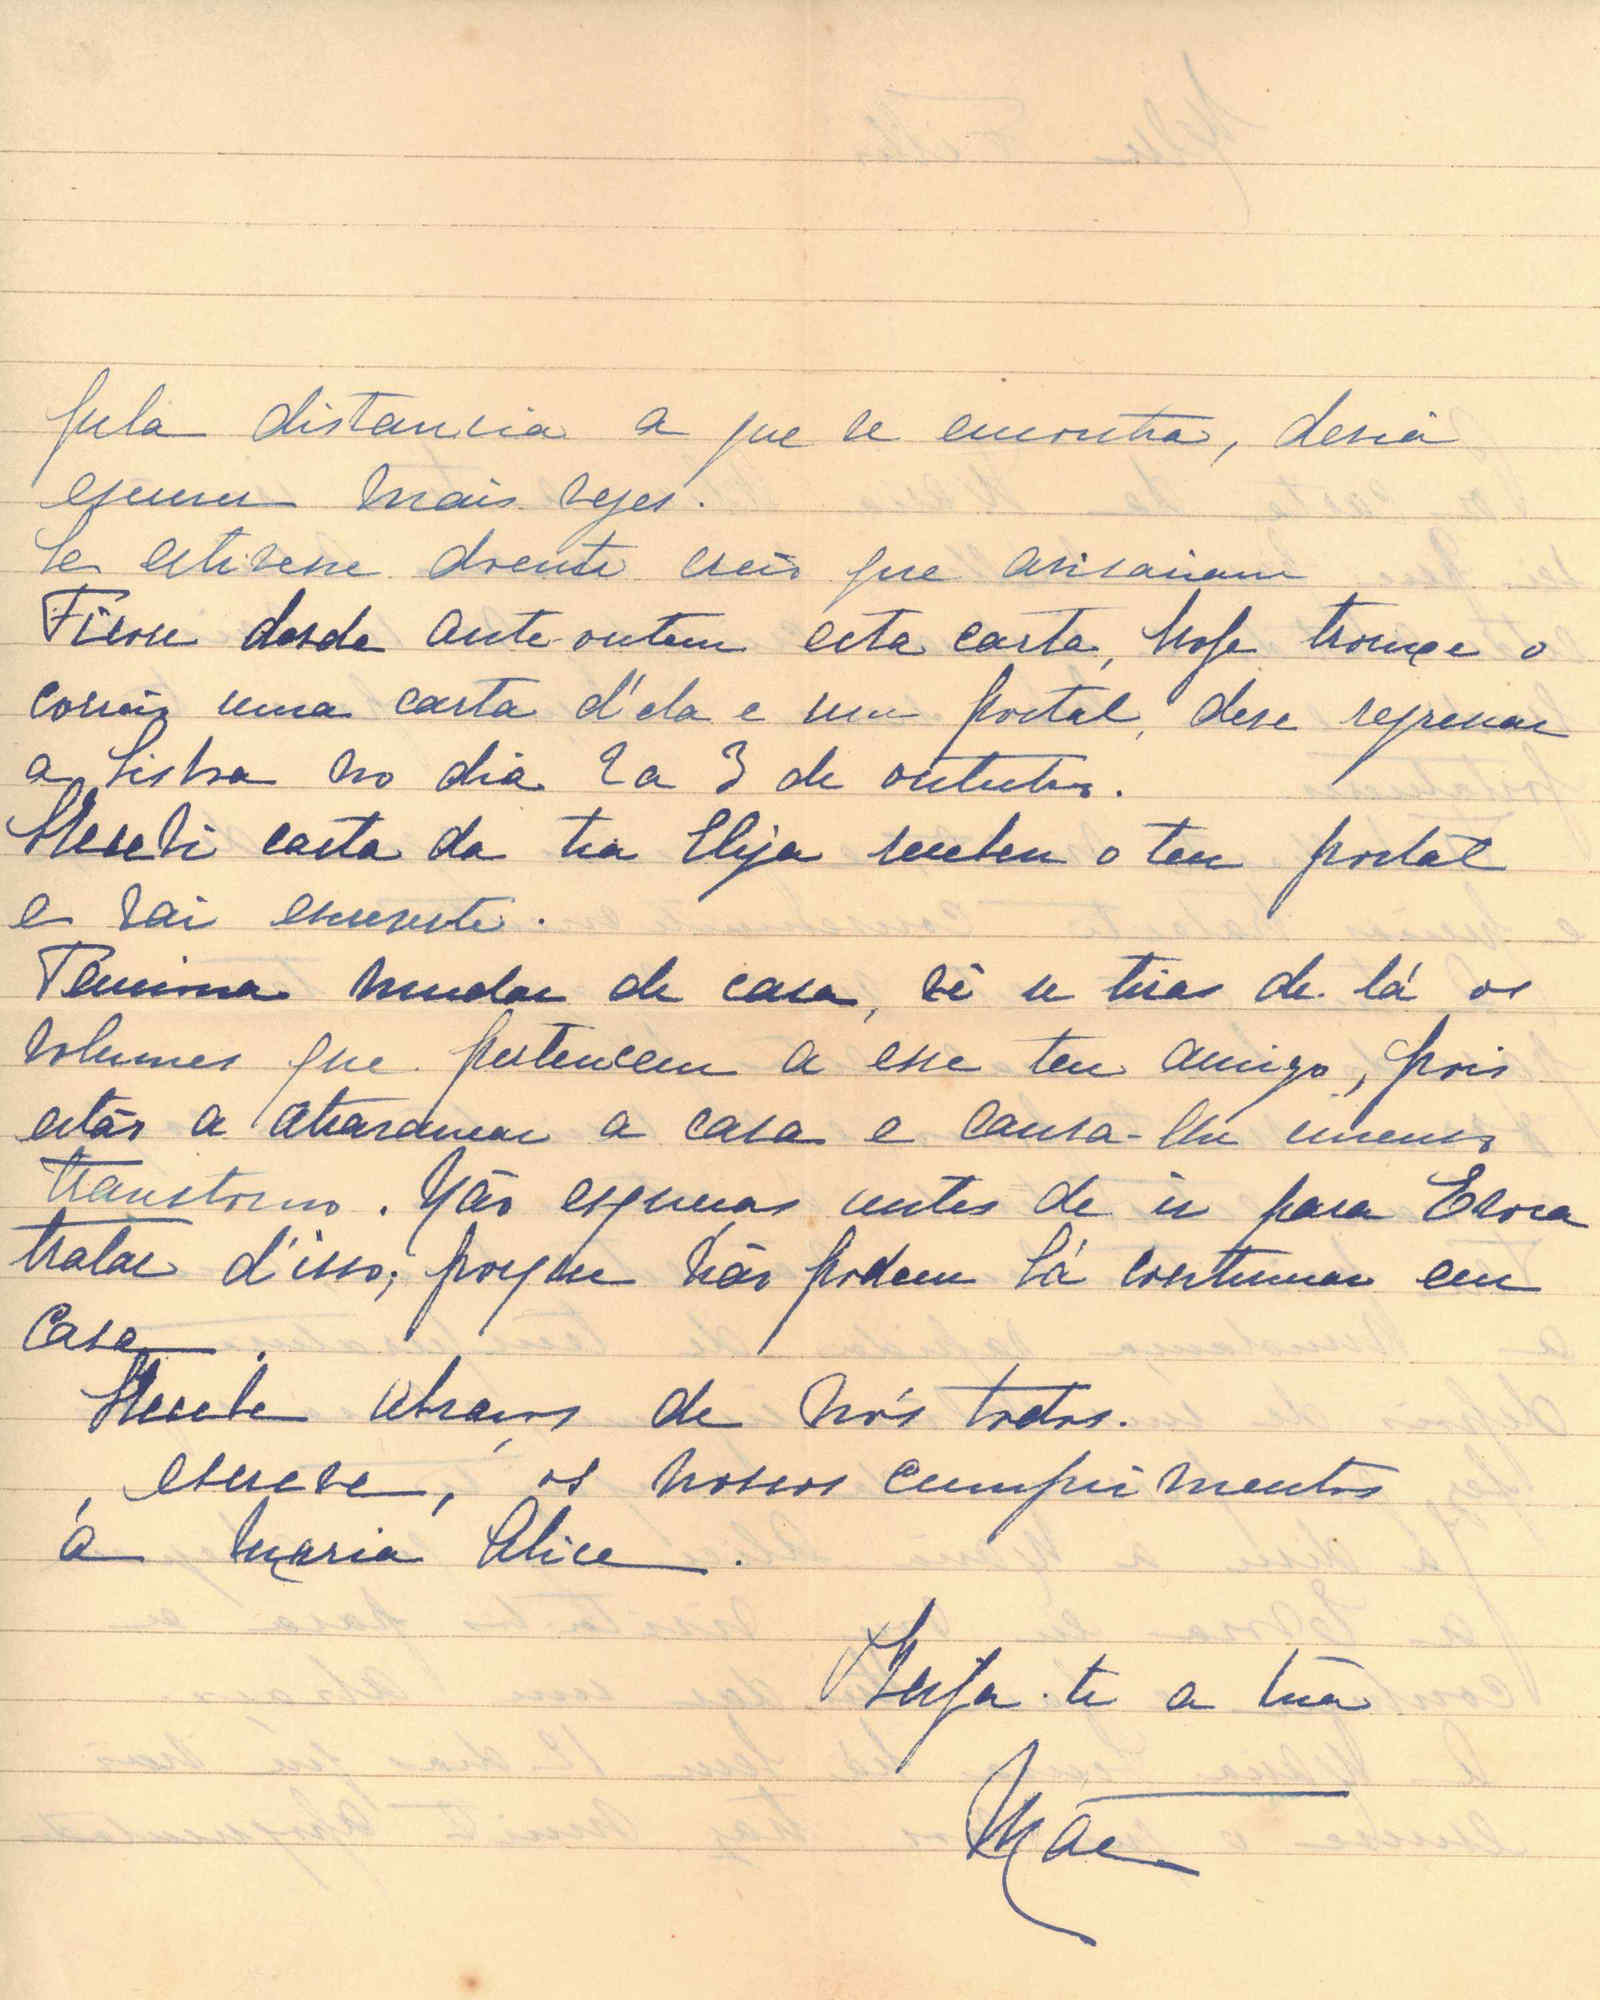 pela distancia a que se encontra, devia
escrever mais vezes.
Se estivesse doente creio que avisariam
Ficou desde ante-ontem esta carta, hoje trouxe o
correio uma carta d'ela e um postal, deve regressar
a Lisboa no dia 2 a 3 de outubro.
Recebi carta da tia Eliza recebeu o teu postal
e vai escrever-te.
mudar de casa, vê se tiras de lá os
volumes que pertencem a esse teu amigo, pois
estão a atravancar a casa e causa-lhe imenso
transtorno. Não esqueças antes de ir para Evora
tratar d'isso, porque não podem lá continuar em
casa.
Recebe abraços de nós todos.
escreve, os nossos cumprimentos
á Maria Alice.
Beija-te a tua
Mãe